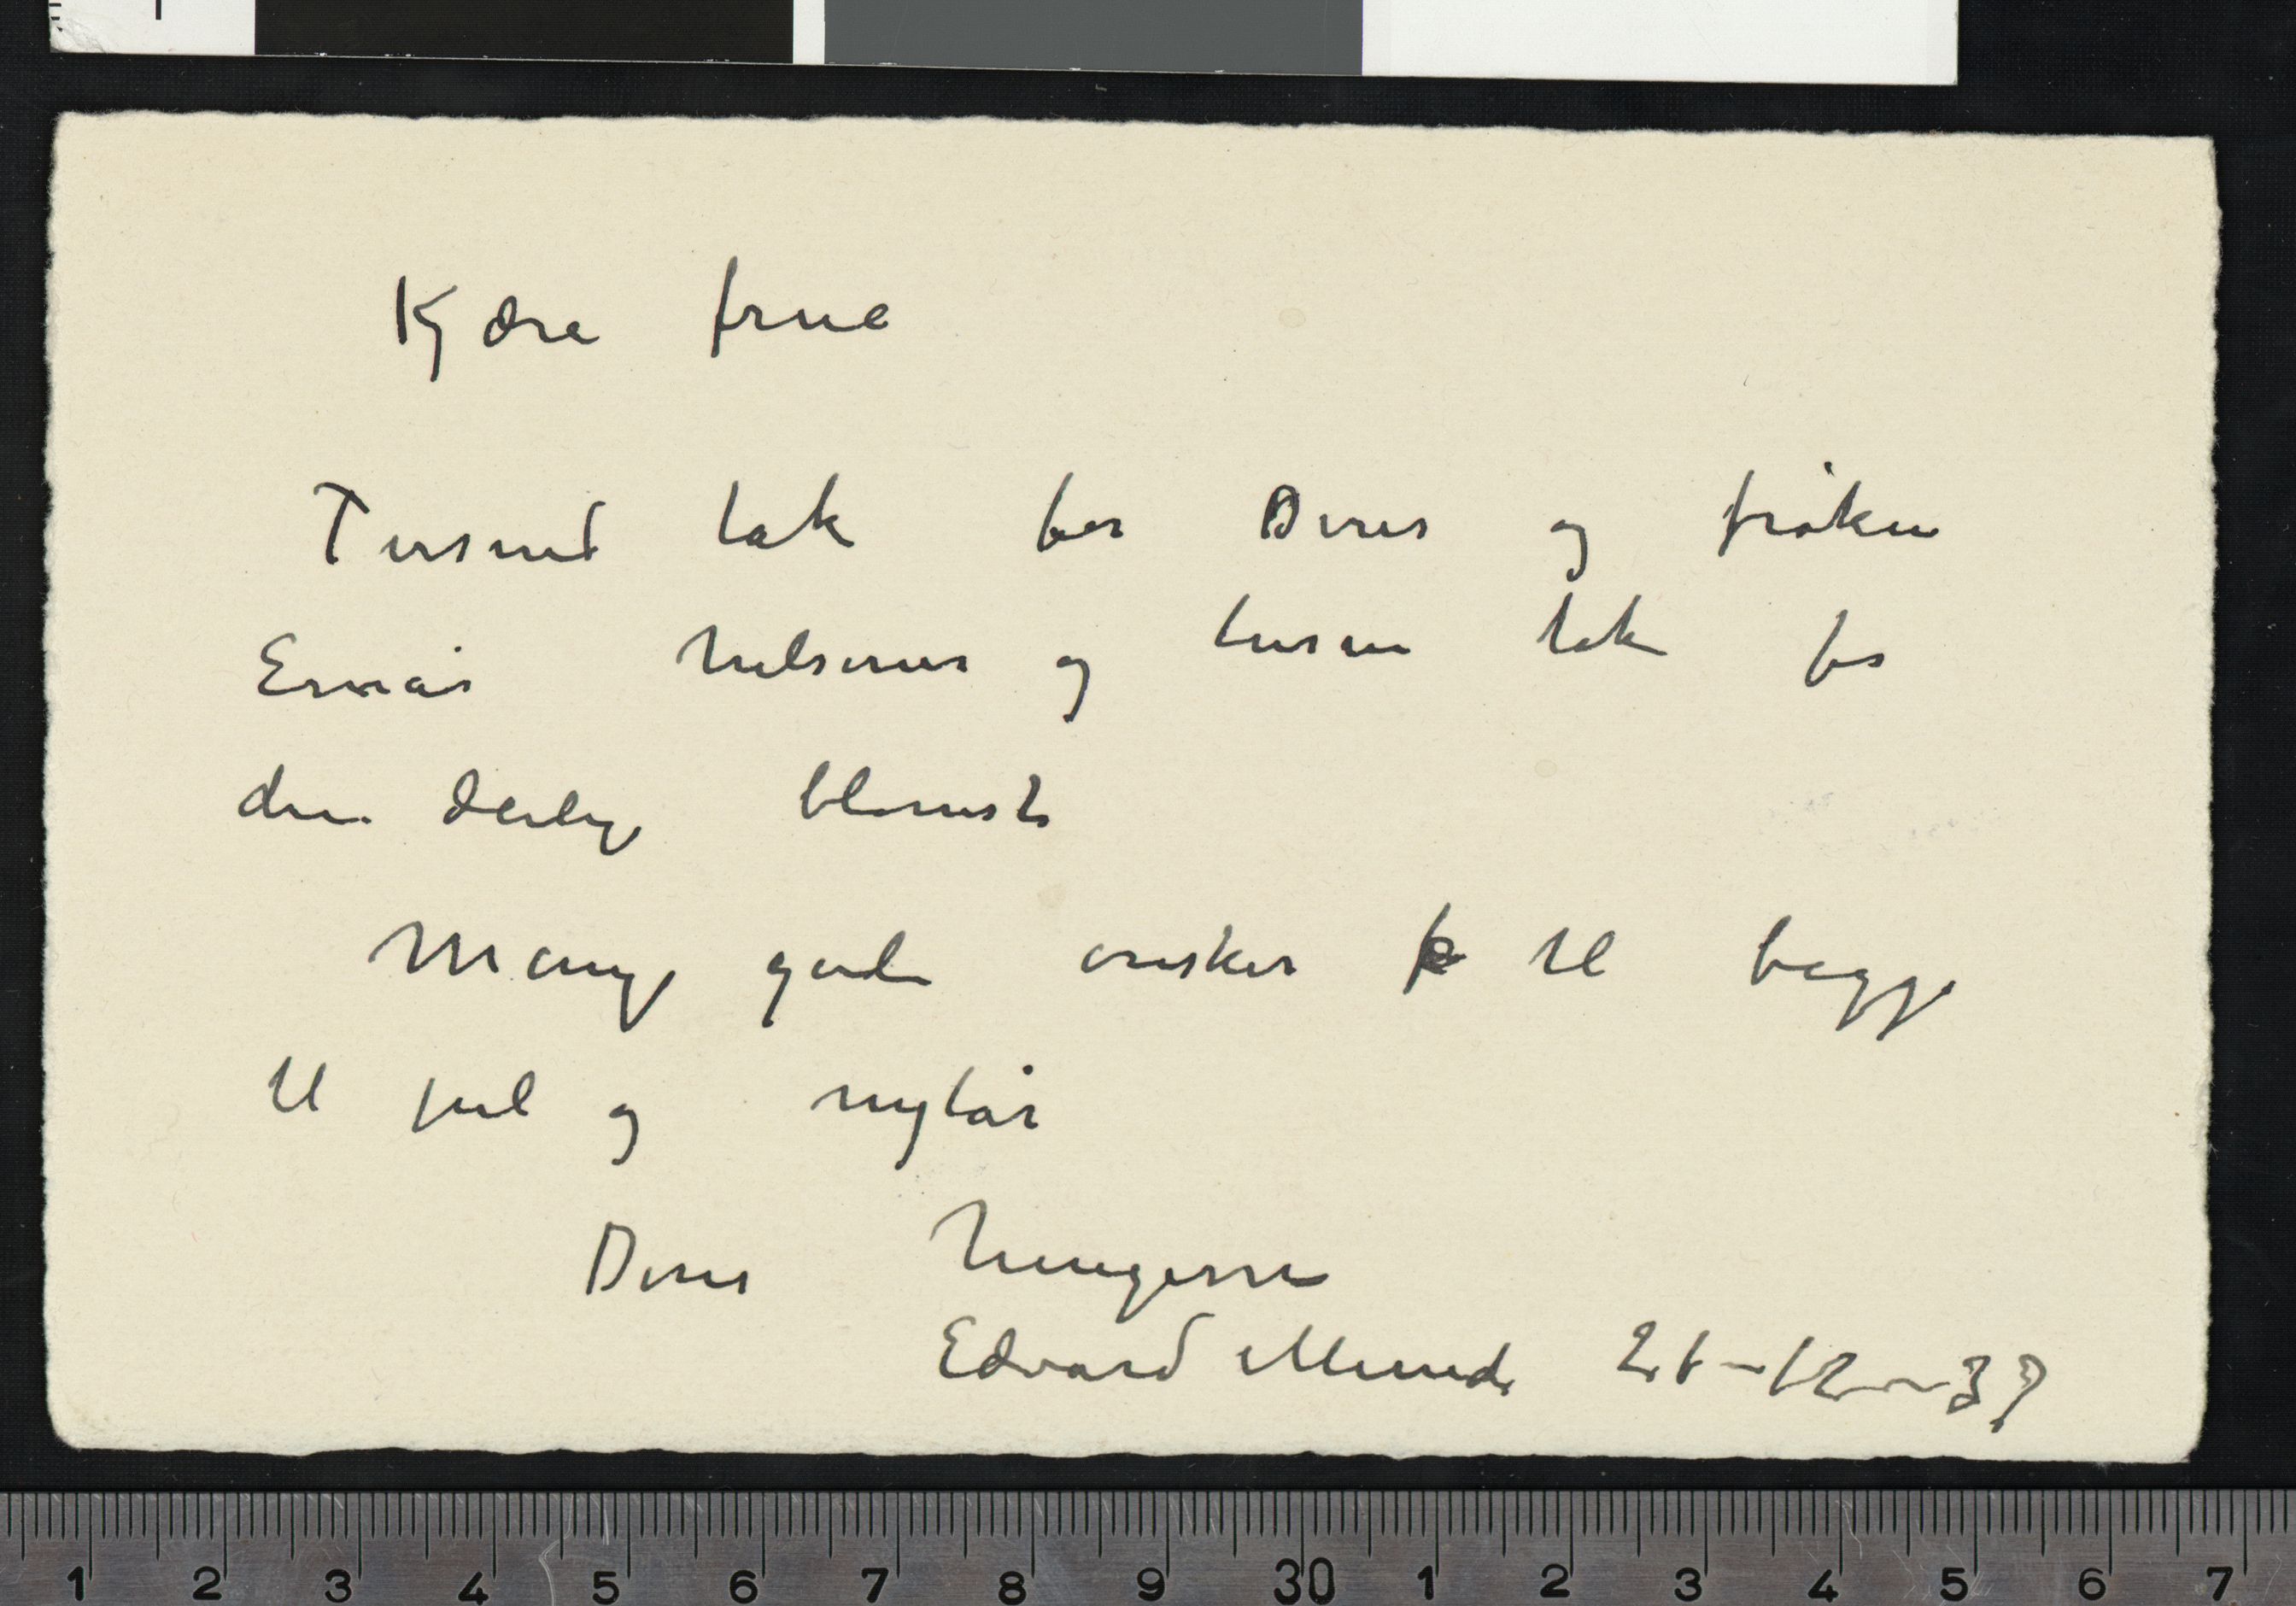 Kjære frue
Tusend tak for Deres og frøken
Ernas hilsener og tusen tak for
den deilige blomst
Mange gode ønsker til begge
til jul og nytår
Deres hengivne
Edvard Munch 21-12-39
1 2 3 4 5 6 7 8 9 30 1 2 3 4 5 6 7